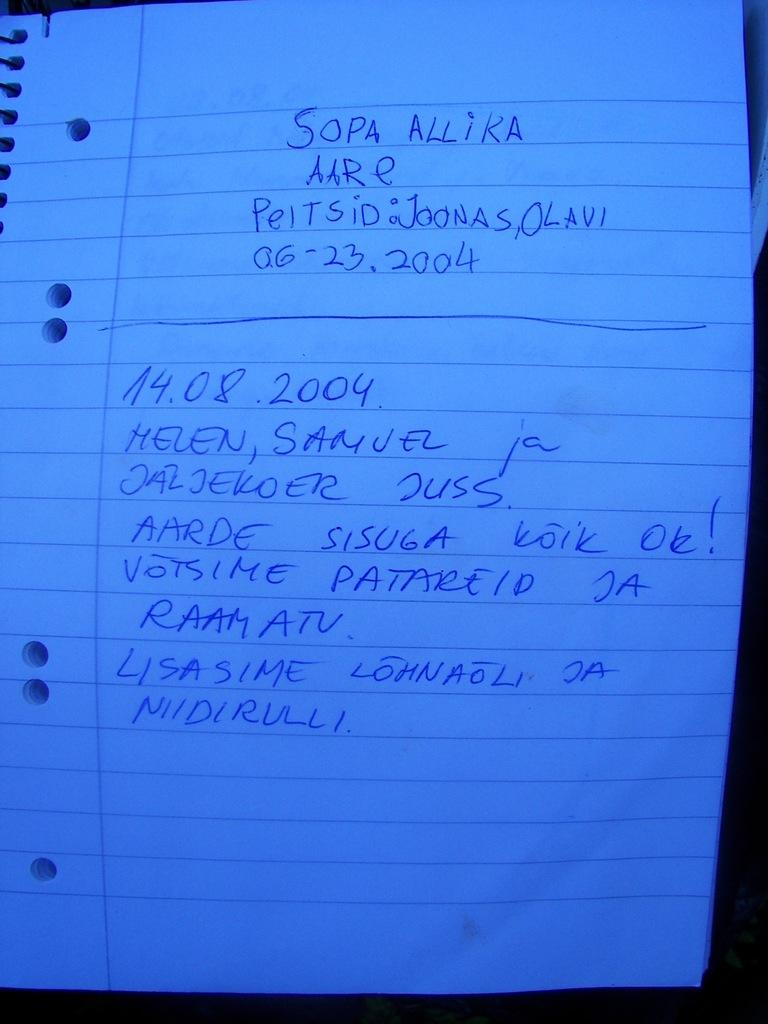 SOPA ALLiKA
AARe
PeiTSiD:JOONAS,OLAVI
06-23.2004
14.08.2004.
HELEN, SAMUEL ja
JÄLJEKOER JUSS.
AARDE SISUGA KÕIK OK!
VÕTSIME PATAREID JA
RAAMATU.
LISASIME LÕHNAÕLI JA
NIIDIRULLI.